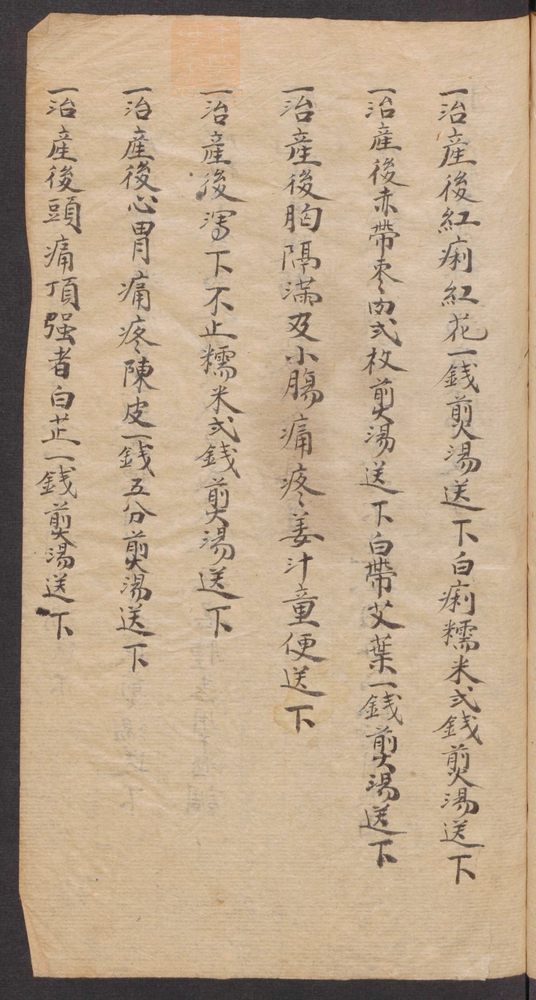 一治產後紅痢紅花一錢煎湯送下白痢糯米弍錢煎湯送下
一治產後赤帶棗肉弍枚煎湯送下白帶艾葉一錢煎湯送下
一治產後胸隔滿及小腸痛疼姜汁童便送下
一治產後瀉下不止糯米弍錢煎湯送下
一治產後心胃痛疼陳皮一錢五分煎湯送下
一治產後頭痛頂强者白芷一錢煎湯送下